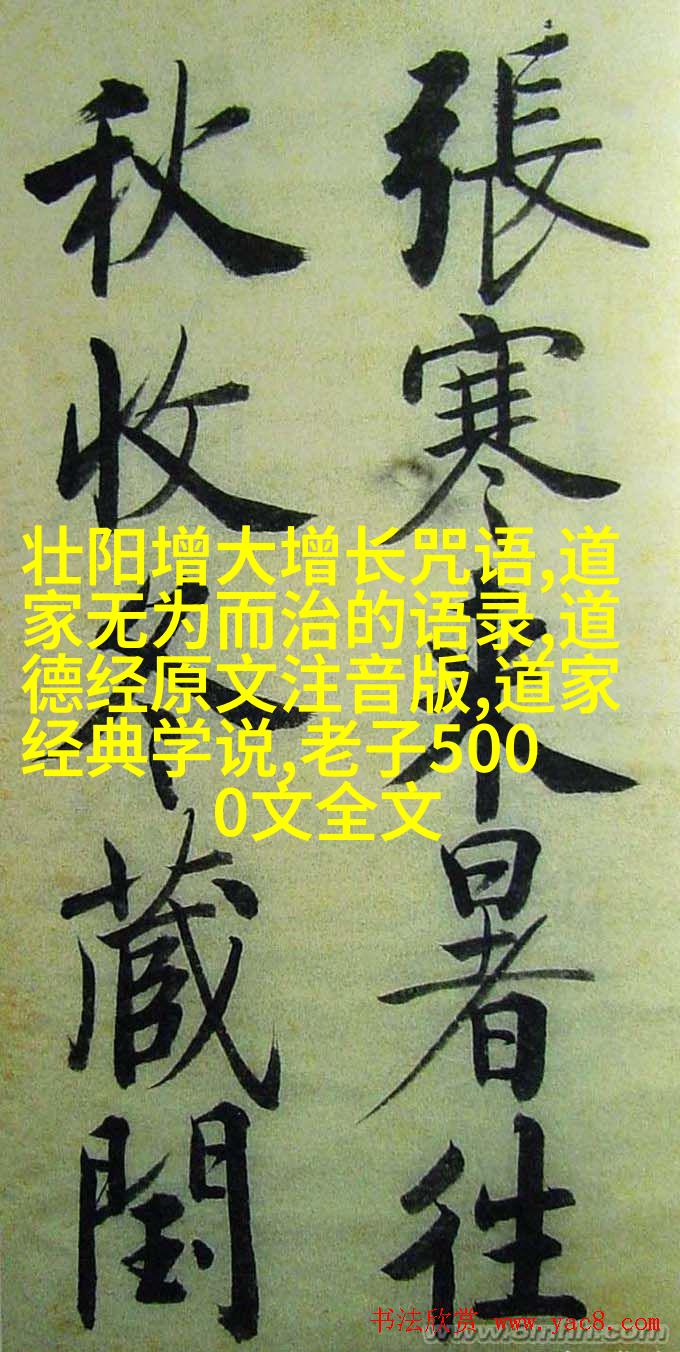 張寒来暑往
秋收冬藏閏
壮阳增大增长咒语,道
家无为而治的语录,道
德经原文注音版,道家
经典学说,老子500
0文全文
书法欣赏 www.yac8.com